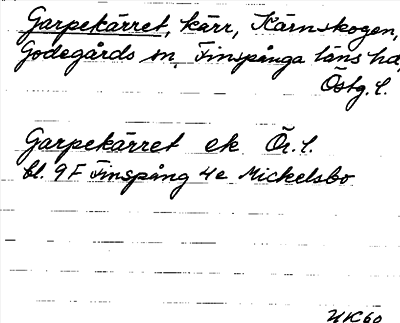 Garpekärret, kärr, Kärnskogen,
Godegårds sn, Finspånga läns hd,
Östg. l.
Garpekärret ek Ör. l.
bl. 9F Finspång 4e Mickelsbo
HK60